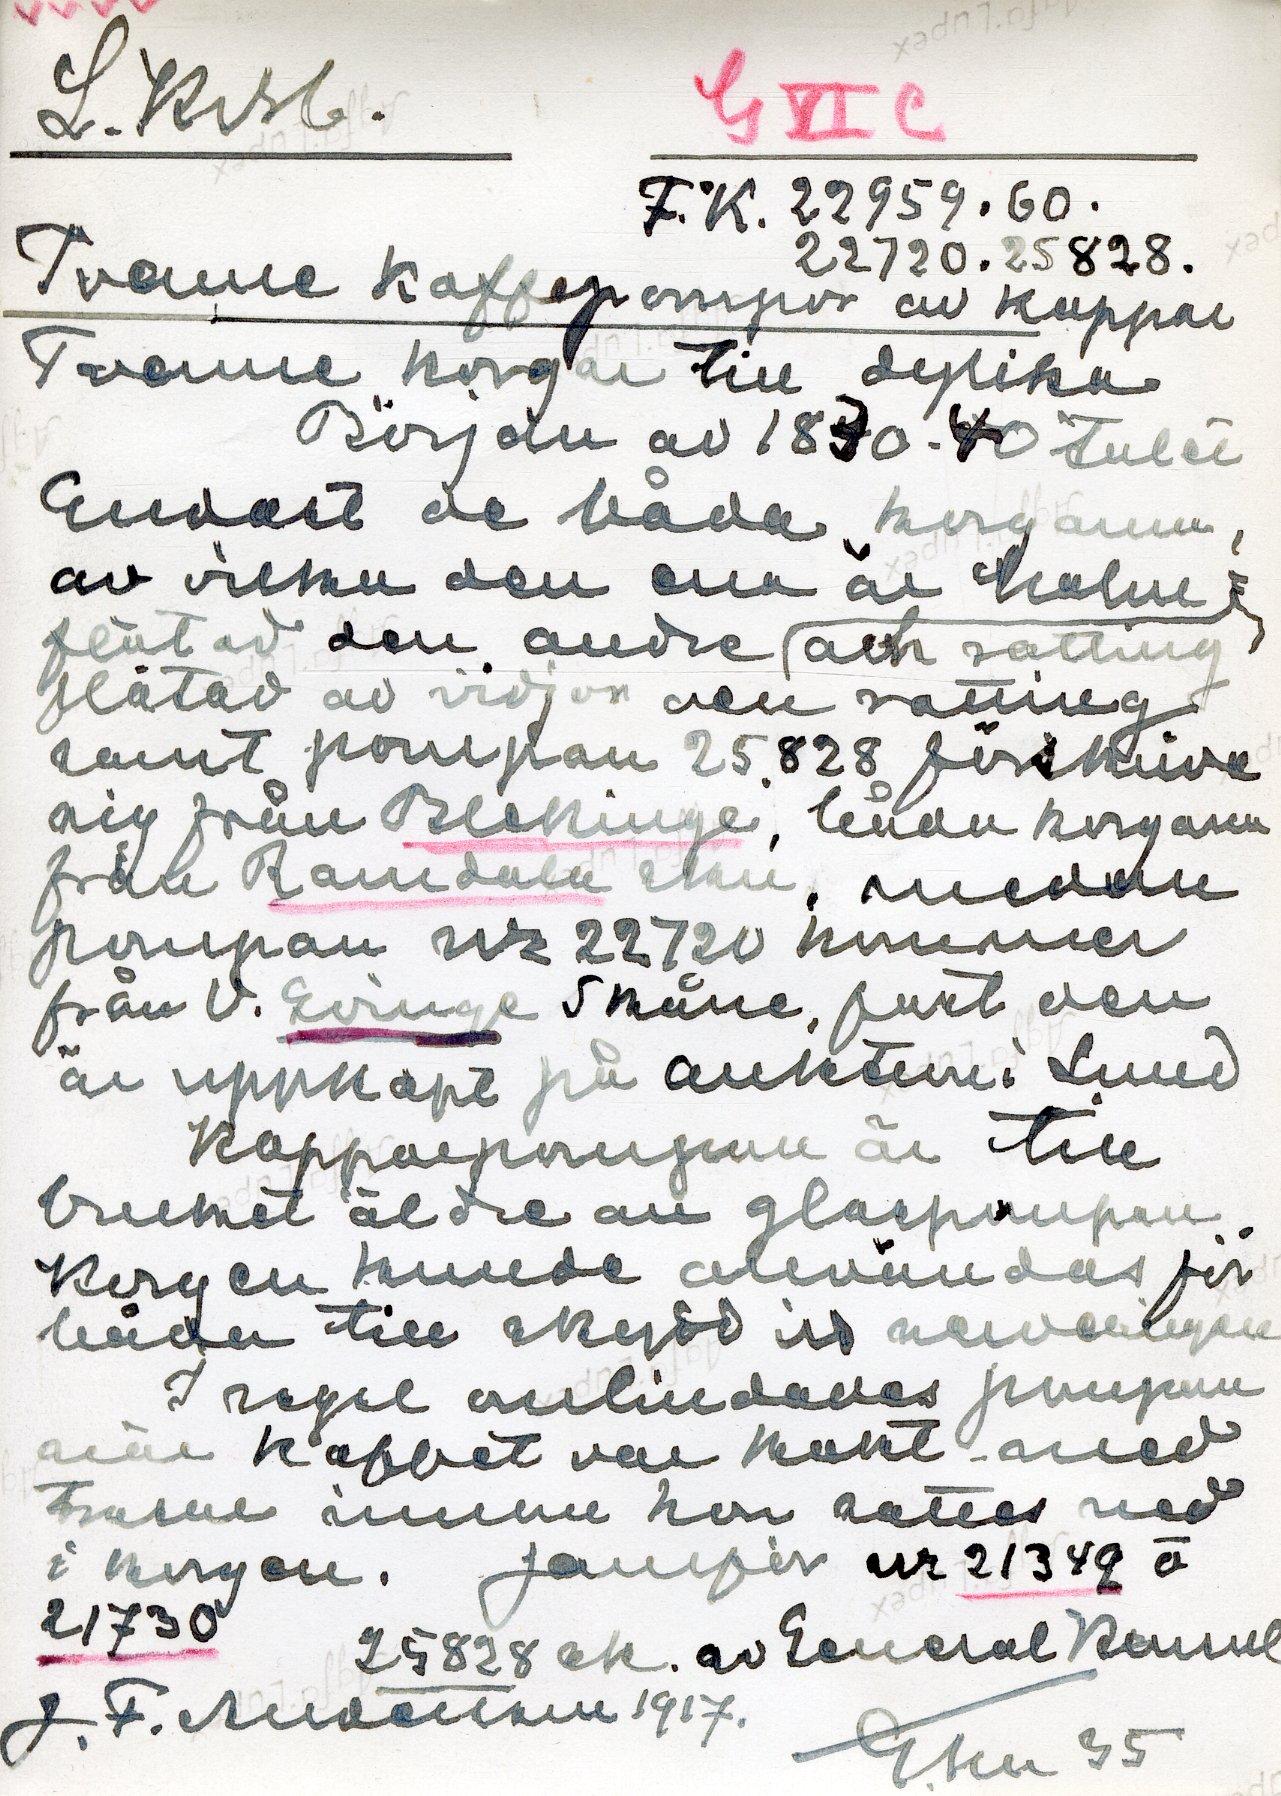 L. Krbl.
G VI C
F.K. 22959. 60.
22720. 25828.
Tvenne Kaffepompor av koppar
Tvenne korgar till dylika
Början av 1830-40 talet
Endast de båda korgarna,
av vilka den ena är halm
flätad den andre (och rotting)
flätad av vidjor den rotting
samt pompan 25.828 förskriva
sig från Blekinge, båda korgarna
från Ramdala skn, medan
pompan nr 22720 kommer
från V. Hoinge Skåne, fast den
är uppköpt på auktion i Lund
Kopparpompan är till
bruket äldre än glaspompan.
Korgen kunde användas för
båda till skydd vid
I regel omlindades pompan
när kaffet var kokt med
trasor innan hon sattes ned
i korgen. Jämför nr 21349 o
21730
25828 sk. av General Konsul
J. F. 1917.
35